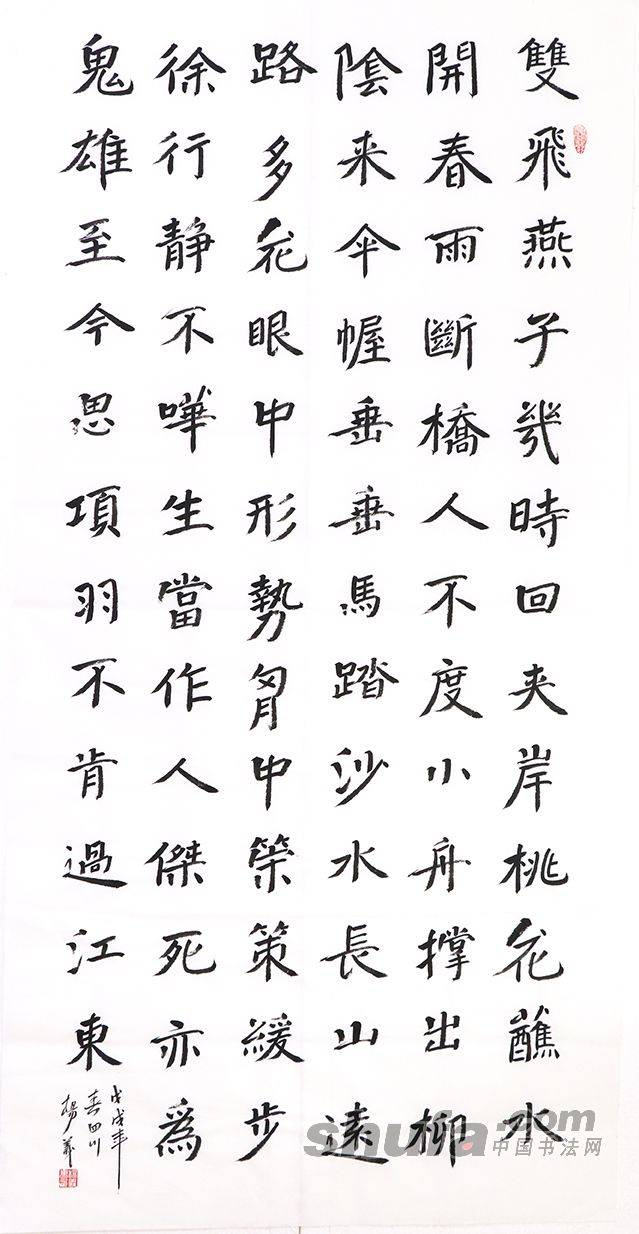 雙飛燕子幾時回夾岸桃花蘸水
開春雨斷橋人不度小舟撐出柳
陰来伞幄垂垂馬踏沙水長山遠
路多花眼中形勢胷中策緩步
徐行靜不嘩生當作人傑死亦為
鬼雄至今思項羽不肯過江東
戊戌年
春四川
楊義
shufa.com
中国书法网